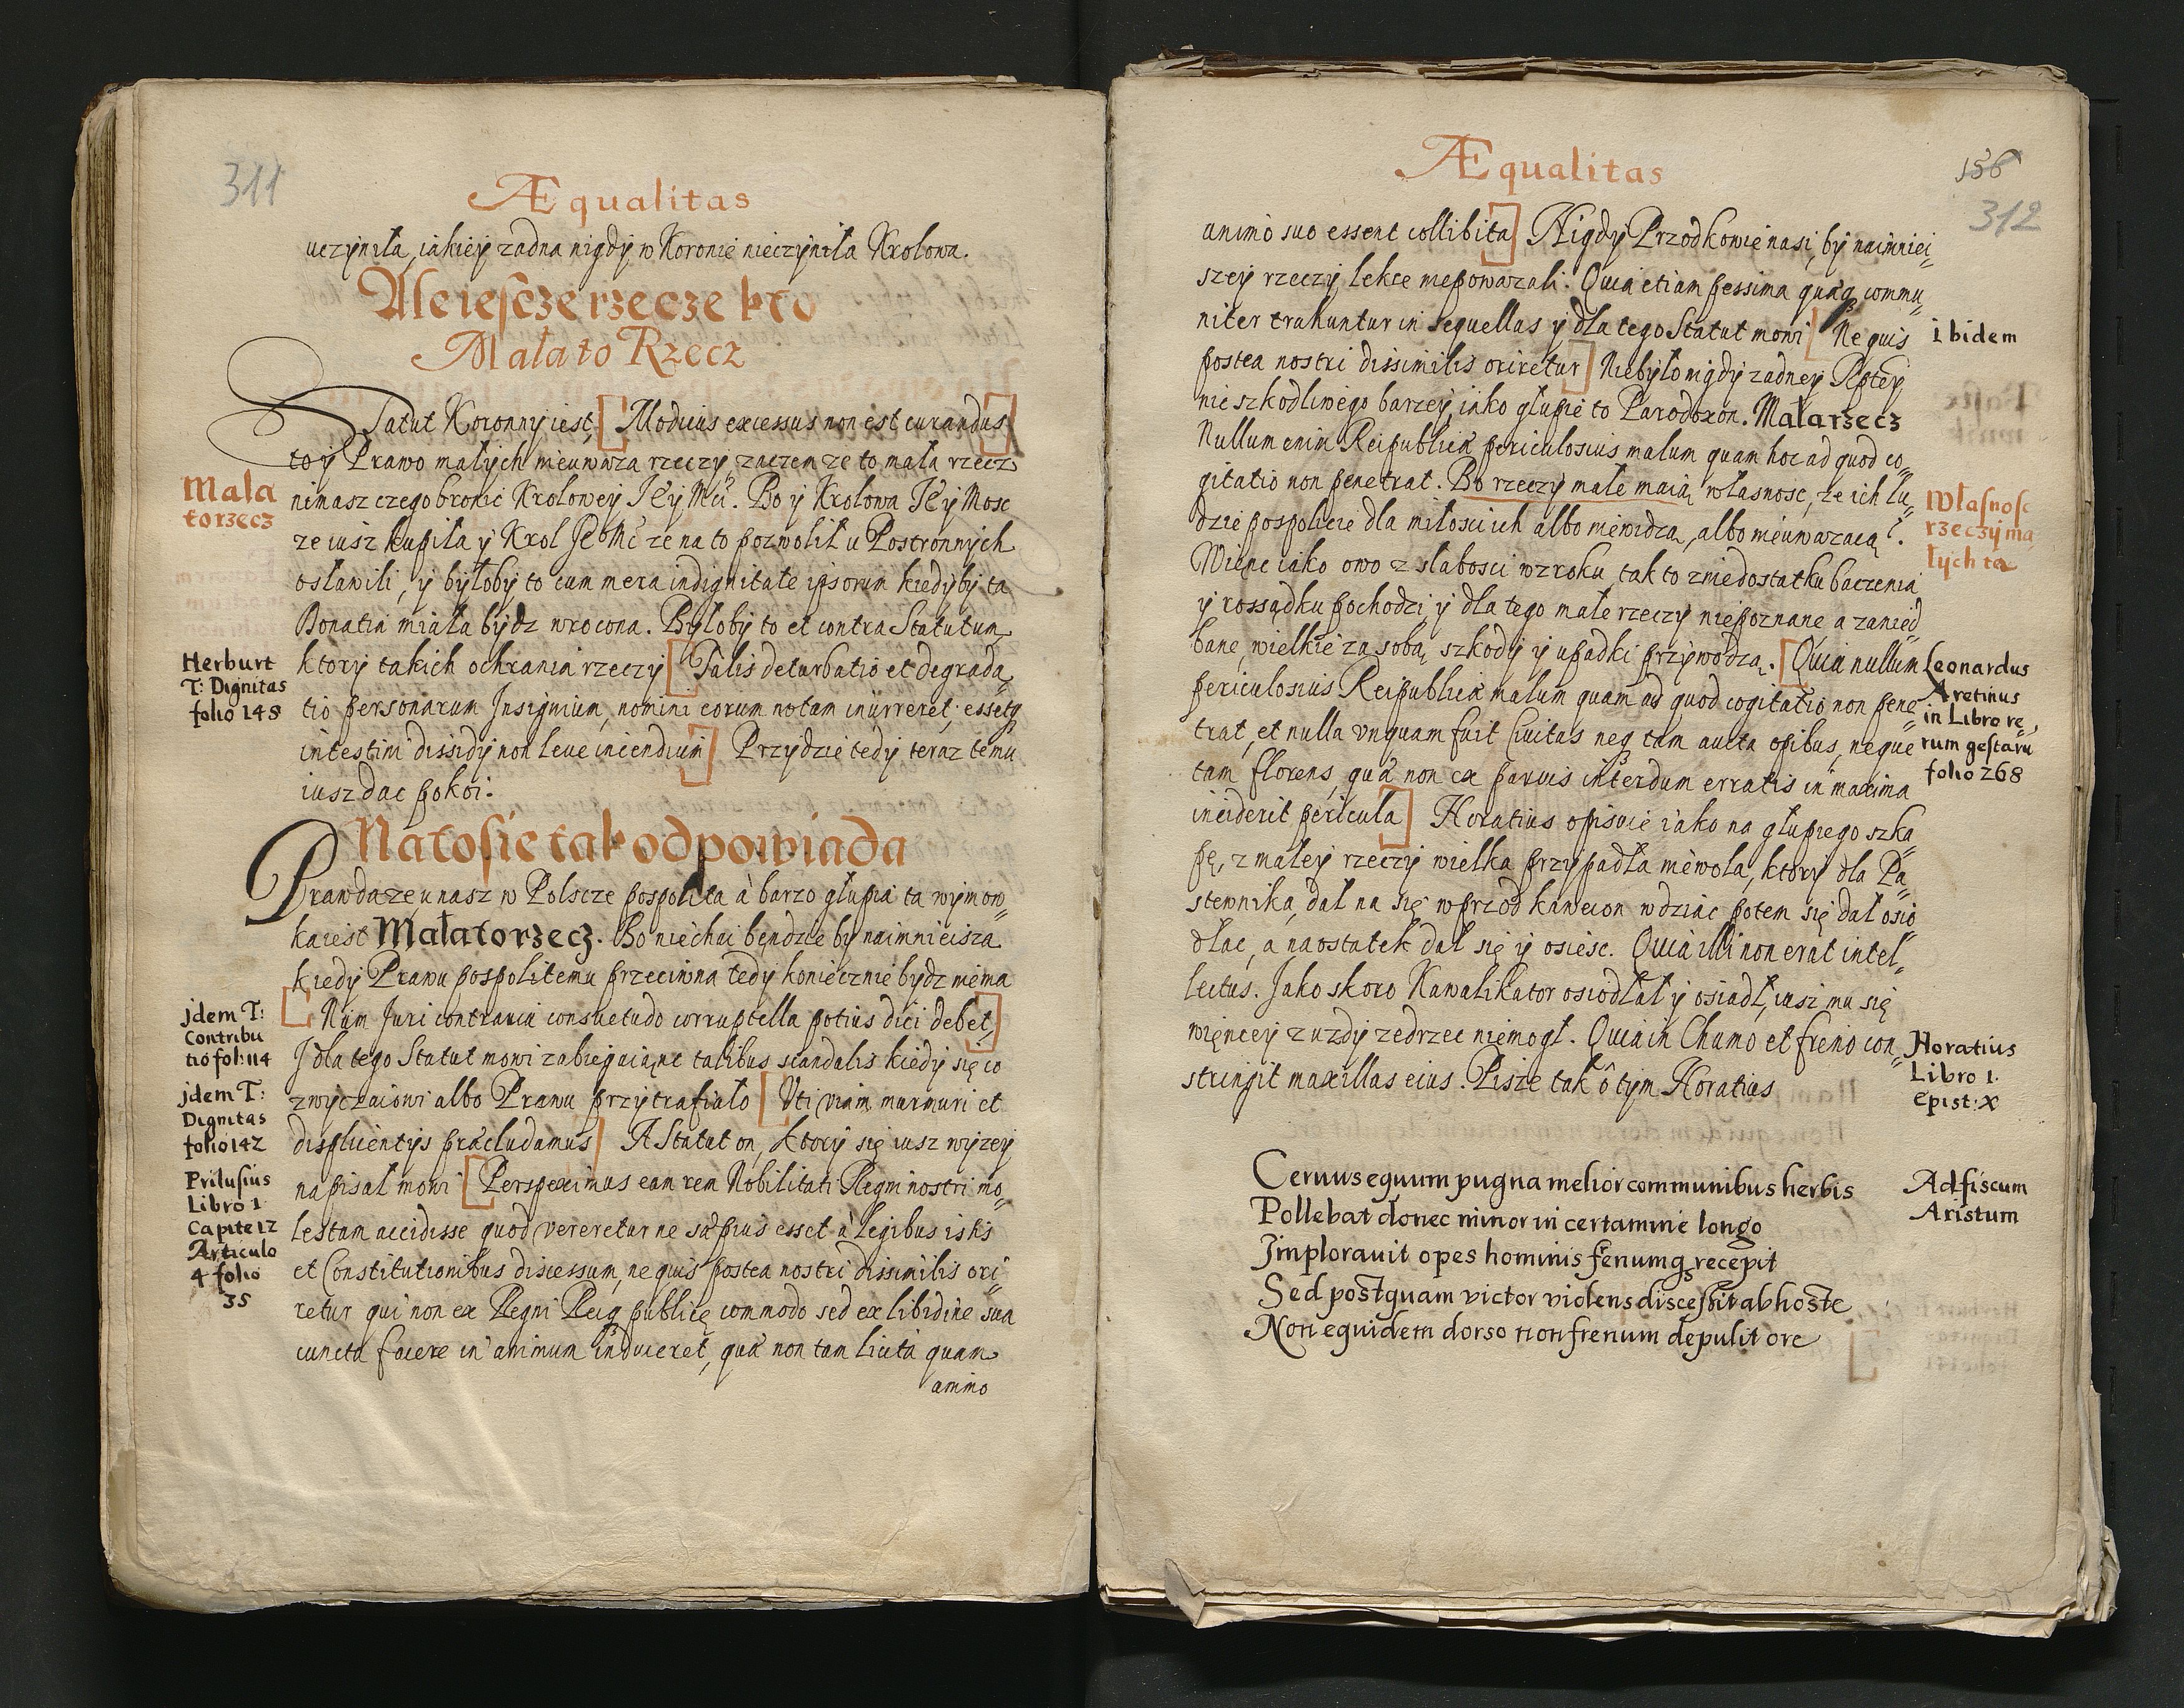 311
Æqualitas
uczyniła, iakiey zadna nigdy w Koronie nieczyniła Krolowa.
Ale iescze rzecze kto
Mała to Rzecz
Statut Koronny iest, [Modicus excessus non est curandus]
to y Prawo małych nieuwaza rzeczy zaczem ze to mała rzecz
Mała
to rzecz
nimasz czego bronic Krolowey JEy Mći. Bo y Krolowa JEy Mosc
ze iusz kupiła y Krol JE Mć ze na to pozwolił u Postronnych
osławili, y byłoby to cum mera indignitate ipsorum kiedyby ta
Donatia miała bydz wrocona. Byłoby to et contra Statutum,
ktory takich ochrania rzeczy [Talis deturbatio et degrada,
Herburt
T: Dignitas
folio 148
tio personarum Insignium, nomini eorum notam inurreret, essetq3
intestini dissidy non leue incendium] Przydzie tedy teraz temu
iusz dac pokoi.
Na to sie tak odpowiada
Prawda ze u nasz w Polscze pospolita à barzo głupia ta wymow,,
ka iest Mała to rzecz. Bo niechai będzie by naimnieisza
kiedy Prawu pospolitemu przeciwna tedy koniecznie bydz niema
[Nam Juri contraria consuetudo corruptella potius dici debet]
jdem T:
Contribu
tio fol: 114
J dla tego Statut mowi zabiegaiąnc talibus scandalis kiedy się co
zwyczaiowi albo Prawu przytrafiało [Uti viam murmuri et
jdem T:
Dignitas
folio 142
displicentys præcludamus] A Statut on, ktory się iusz wyzey
napisał mowi [Perspeximus eam rem Nobilitati Regni nostri mo,,
Prilusius
Libro 1
Capite 12
Articulo
4 folio
35
lestam accidisse quod vereretur ne sæpius esset à Legibus istis
et Constitutionibus discessum, ne quis postea nostri dissimilis ori,,
retur qui non ex Regni Reiq3 publicę commodo sed ex libidine sua
cuncta facere in animum induceret, quæ non tam licita quam
animo
Æqualitas
156
312
animo suo essent collibita] Nigdy Przodkowie nasi, by naimniei,,
szey rzeczy lekce niepowazali. Quia etiam pessima quæq3 commu,,
niter trahuntur in sequellas y dla tego Statut mowi [Ne quis
ibidem
postea nostri dissimilis oriretur] Niebyło nigdy zadney Rptey
nic szkodliwego barzey iako głupie to Parodoxon. Mała rzecz
Nullum enim Reipublicæ periculosius malum quam hoc ad quod co,,
gitatio non penetrat. Bo rzeczy małe maią własnosc, ze ich lu,,
Własnosc
rzeczy ma
łych ta
dzie pospolicie dla małosci ich albo niewidzą, albo nieuwazaią.
Więnc iako owo z słabosci wzroku, tak to z niedostatku baczenia
y rossądku pochodzi y dla tego małe rzeczy niepoznane a zanied,,
bane, wielkie za sobą szkody y upadki przywodzą. [Quia nullum
Leonardus
Aretinus
in Libro re,,
rum gestaru
folio 268
periculosius Reipublicæ malum quam ad quod cogitatio non pene,,
trat, et nulla vnquam fuit Ciuitas neq3 tam aucta opibus, neque
tam florens, quæ non ex paruis interdum erratis in maxima
inciderit pericula] Horatius opisuie iako na głupiego szka,,
pę, z małey rzeczy wielka przypadła niewola, ktory dla Pa,,
stewnika, dał na się wprzod kawecon wdziac potem się dał osio,,
dłac, a na ostatek dał się y osiesc. Quia illi non erat intel,,
lectus. Jako skoro Kawalikator osiodłał y osiadł, iusz mu się
więncey z uzdy zedrzec niemogł. Quia in Chamo et freno con,,
strinxit maxillas eius. Pisze tak o tym Horatius
Horatius
Libro 1.
Epist: X
Ceruus equum pugna melior communibus herbis
Ad fiscum
Aristum
Pollebat donec minor in certamine longo
Jmplorauit opes hominis frenumq3 recepit
Sed postquam victor violens discessit ab hoste
Non equidem dorso non frenum depulit ore